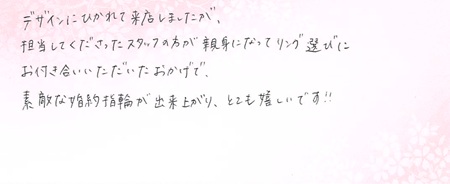 デザインにひかれて来店しましたが、
担当してくださったスタッフの方が親身になってリング選びに
お付き合いいただいたおかげで、
素敵な婚約指輪が出来上がり、とても嬉しいです!!